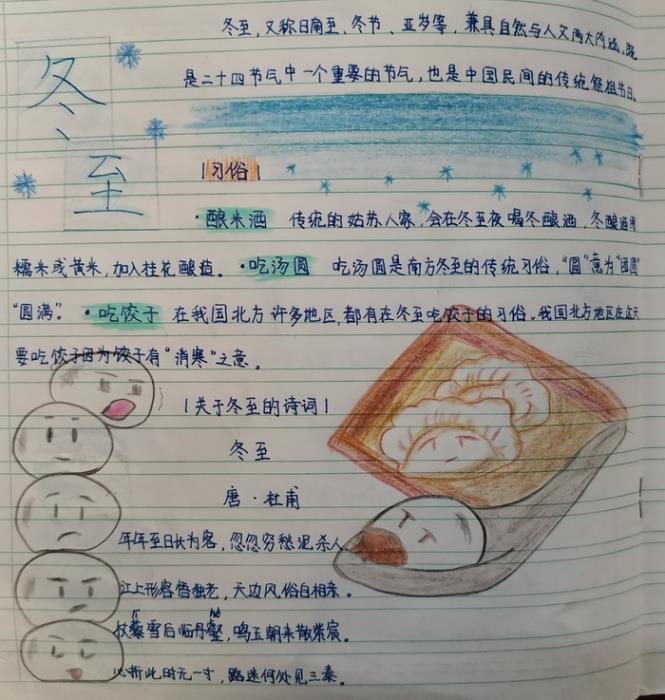 冬至
冬至,又称日南至、冬节、亚岁等,兼具自然与人文两大内涵,既
是二十四节气中一个重要的节气,也是中国民间的传统祭祖节日。
|习俗|
·酿米酒 传统的姑苏人家,会在冬至夜喝冬酿酒,冬酿酒用
糯米或黄米,加入桂花酿造。·吃汤圆 吃汤圆是南方冬至的传统习俗,“圆”意为“团圆”
“圆满”。·吃饺子 在我国北方许多地区,都有在冬至吃饺子的习俗。我国北方地区在这天
要吃饺子因为饺子有“消寒”之意。
|关于冬至的诗词|
冬至
唐·杜甫
年年至日长为客,忽忽穷愁泥杀人。
江上形容吾独老,天边风俗自相亲。
杖藜雪后临丹壑,鸣玉朝来散紫宸。
心折此时无一寸,路迷何处见三秦。